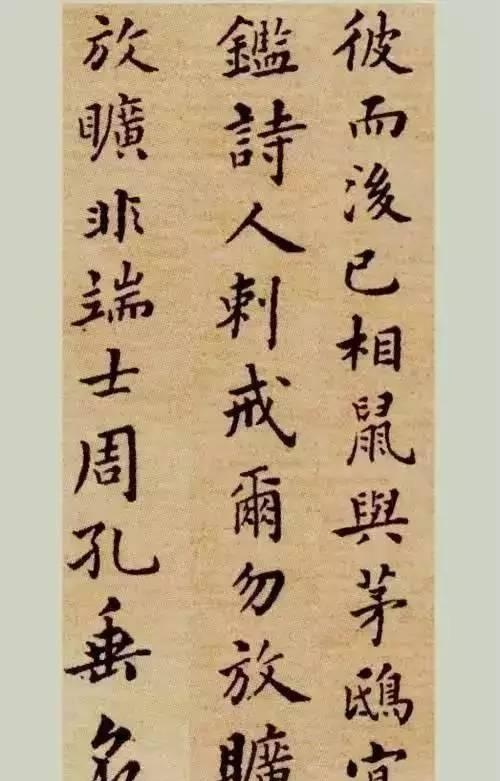 彼而後已相鼠與茅鴟
鑑詩人刺戒爾勿放矌
放矌非端士周孔垂名